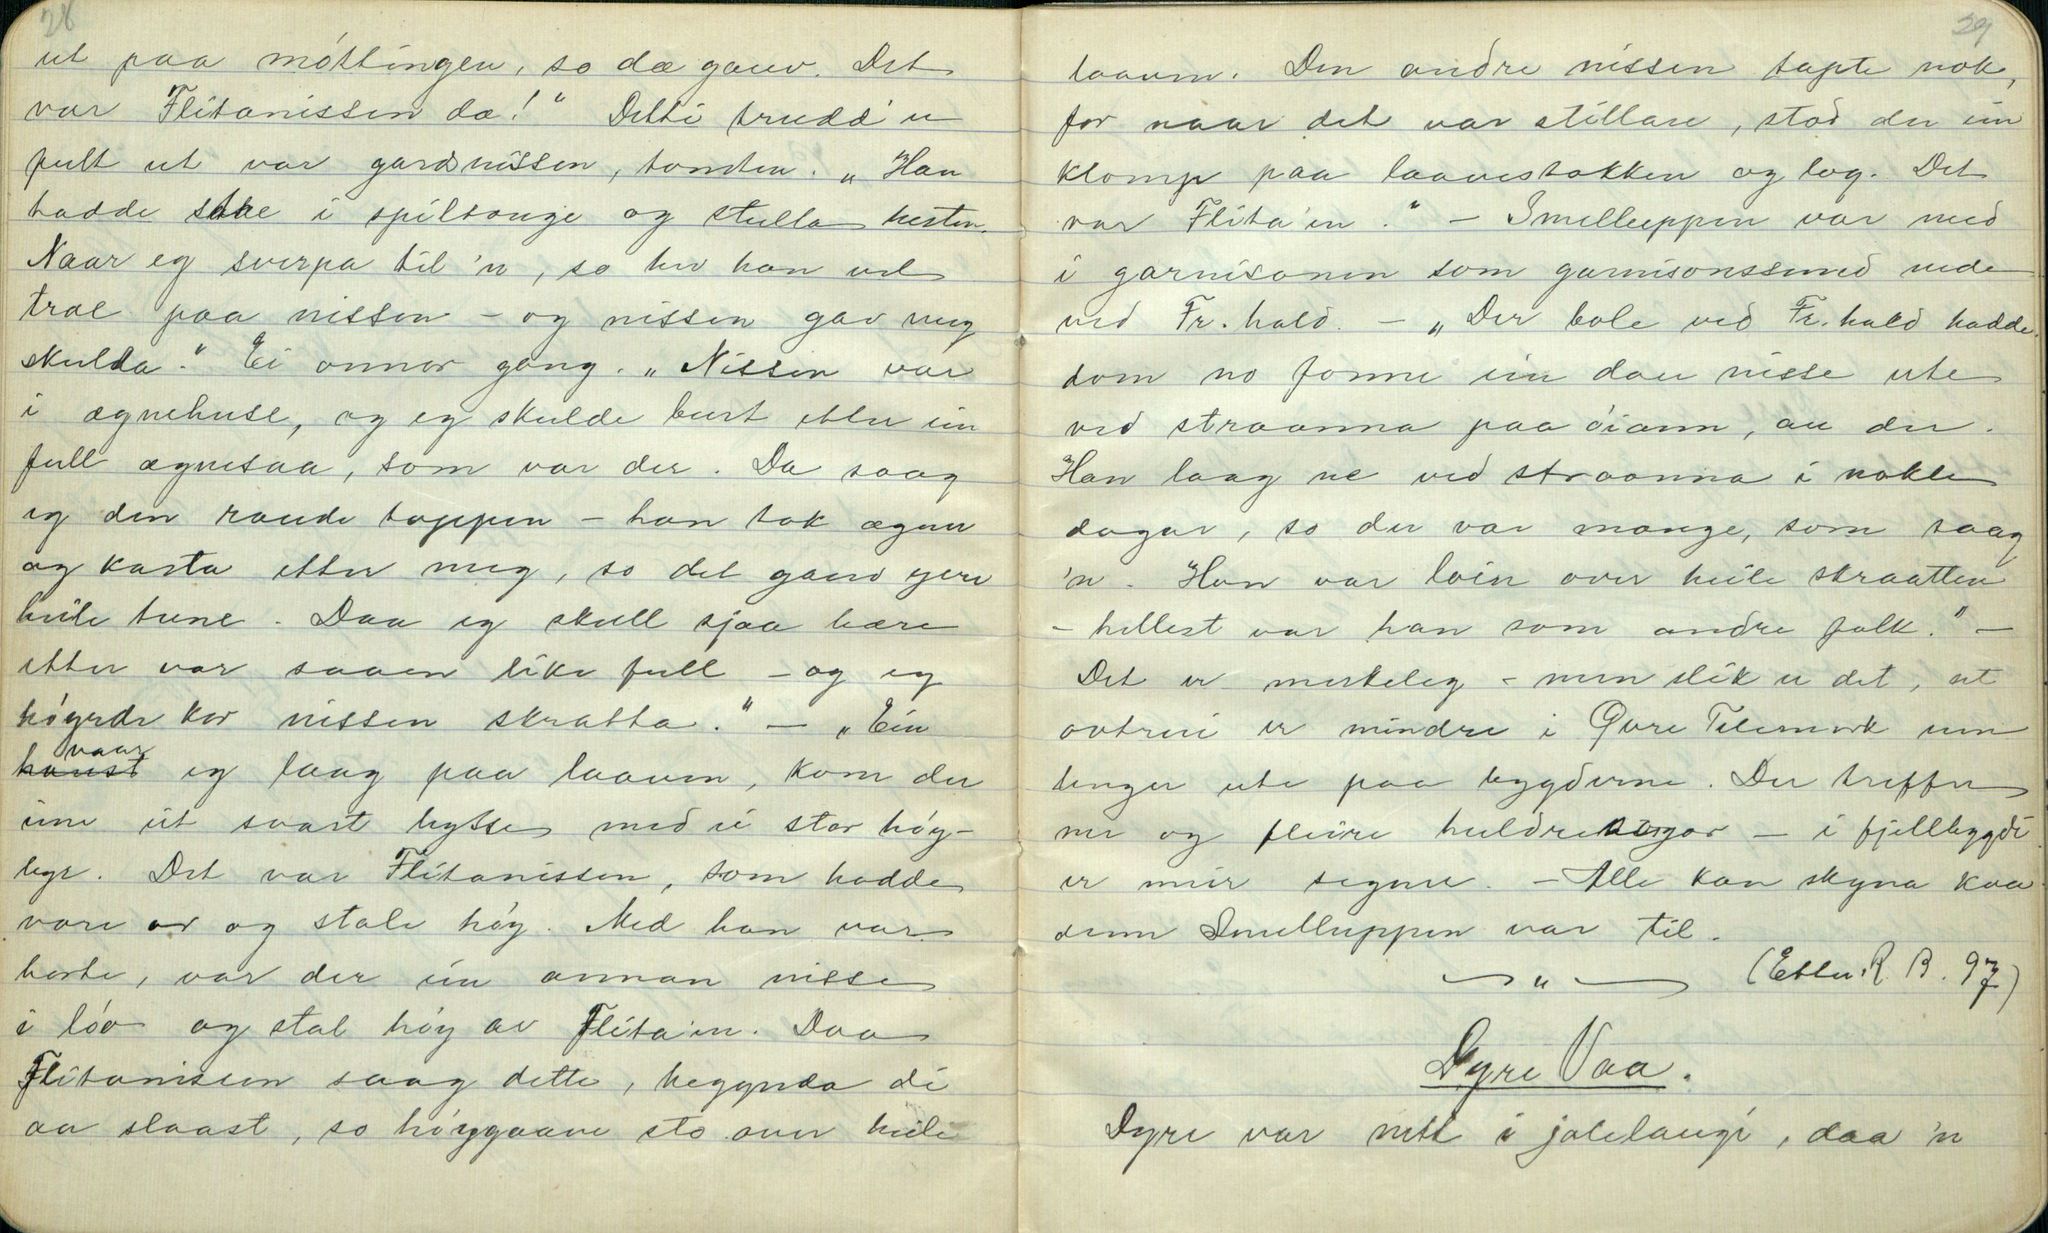 28
ut paa móttingen, so dæ gauv. Det
var Flitanissen da!" Detti trudd'u
fullt ut var gardsnissen, tomten. „Han
hadde sitte i spiltonge og stulla hesten.
Naar eg sverpa til 'n, so hev han vel
træl paa nissen – og nissen gav meg
skulda." Ei annor gong. „Nissen var
i agnehuse, og eg skulde burt etter ein
full agnesaa, som var der. Da saag
eg den raude toppen – han tok agner
og kasta etter meg, so det gauv yver
heile tune. Daa eg skull sjaa bære
etter var saaen like full – og eg
höyrde kor nissen skratta." – „Ein
vaar
haust eg laag paa laaven, kom der
eine eit svart bytte med ei stor höy-
byr. Det var Flitanissen, som hadde
vore av og stole höy. Med han var
borte, var der ein annan nisse
i lóo og stal höy av Flita'en. Daa
Flitanissen saag dette, begynda di
aa slaast, so höyggaave sto over heile
29
laaven. Den andre nissen tapte nok,
for naar det var stillare, stod der ein
klomp paa laavestokken og log. Det
var Flita'en." – Smelluppen var med
i garnisonen som garnisonssmed nede
ved Fr.hald. – „Der bole ved Fr.hald hadde
dom no fonne ein dau nisse ute
ved straanna paa öiann, au der.
Han laag ne ved straanna i nokle
dagar, so der var mange, som saag
'n. Han var loin over heile skraatten
– hellest var han som andre folk." –
Det er merkeleg – men slik er det, at
ovtrui er mindre i Övre Telemork enn
lenger ute paa bygderne. Der treffer
me og fleire huldresogor – i fjellbygdi
er meir segner. – Alle kan skyna kaa
denn Smelluppen var til.
— „ — (Etter R. B. 97)
Dyre Vaa.
Dyre var nett i jolelaugi, daa 'n